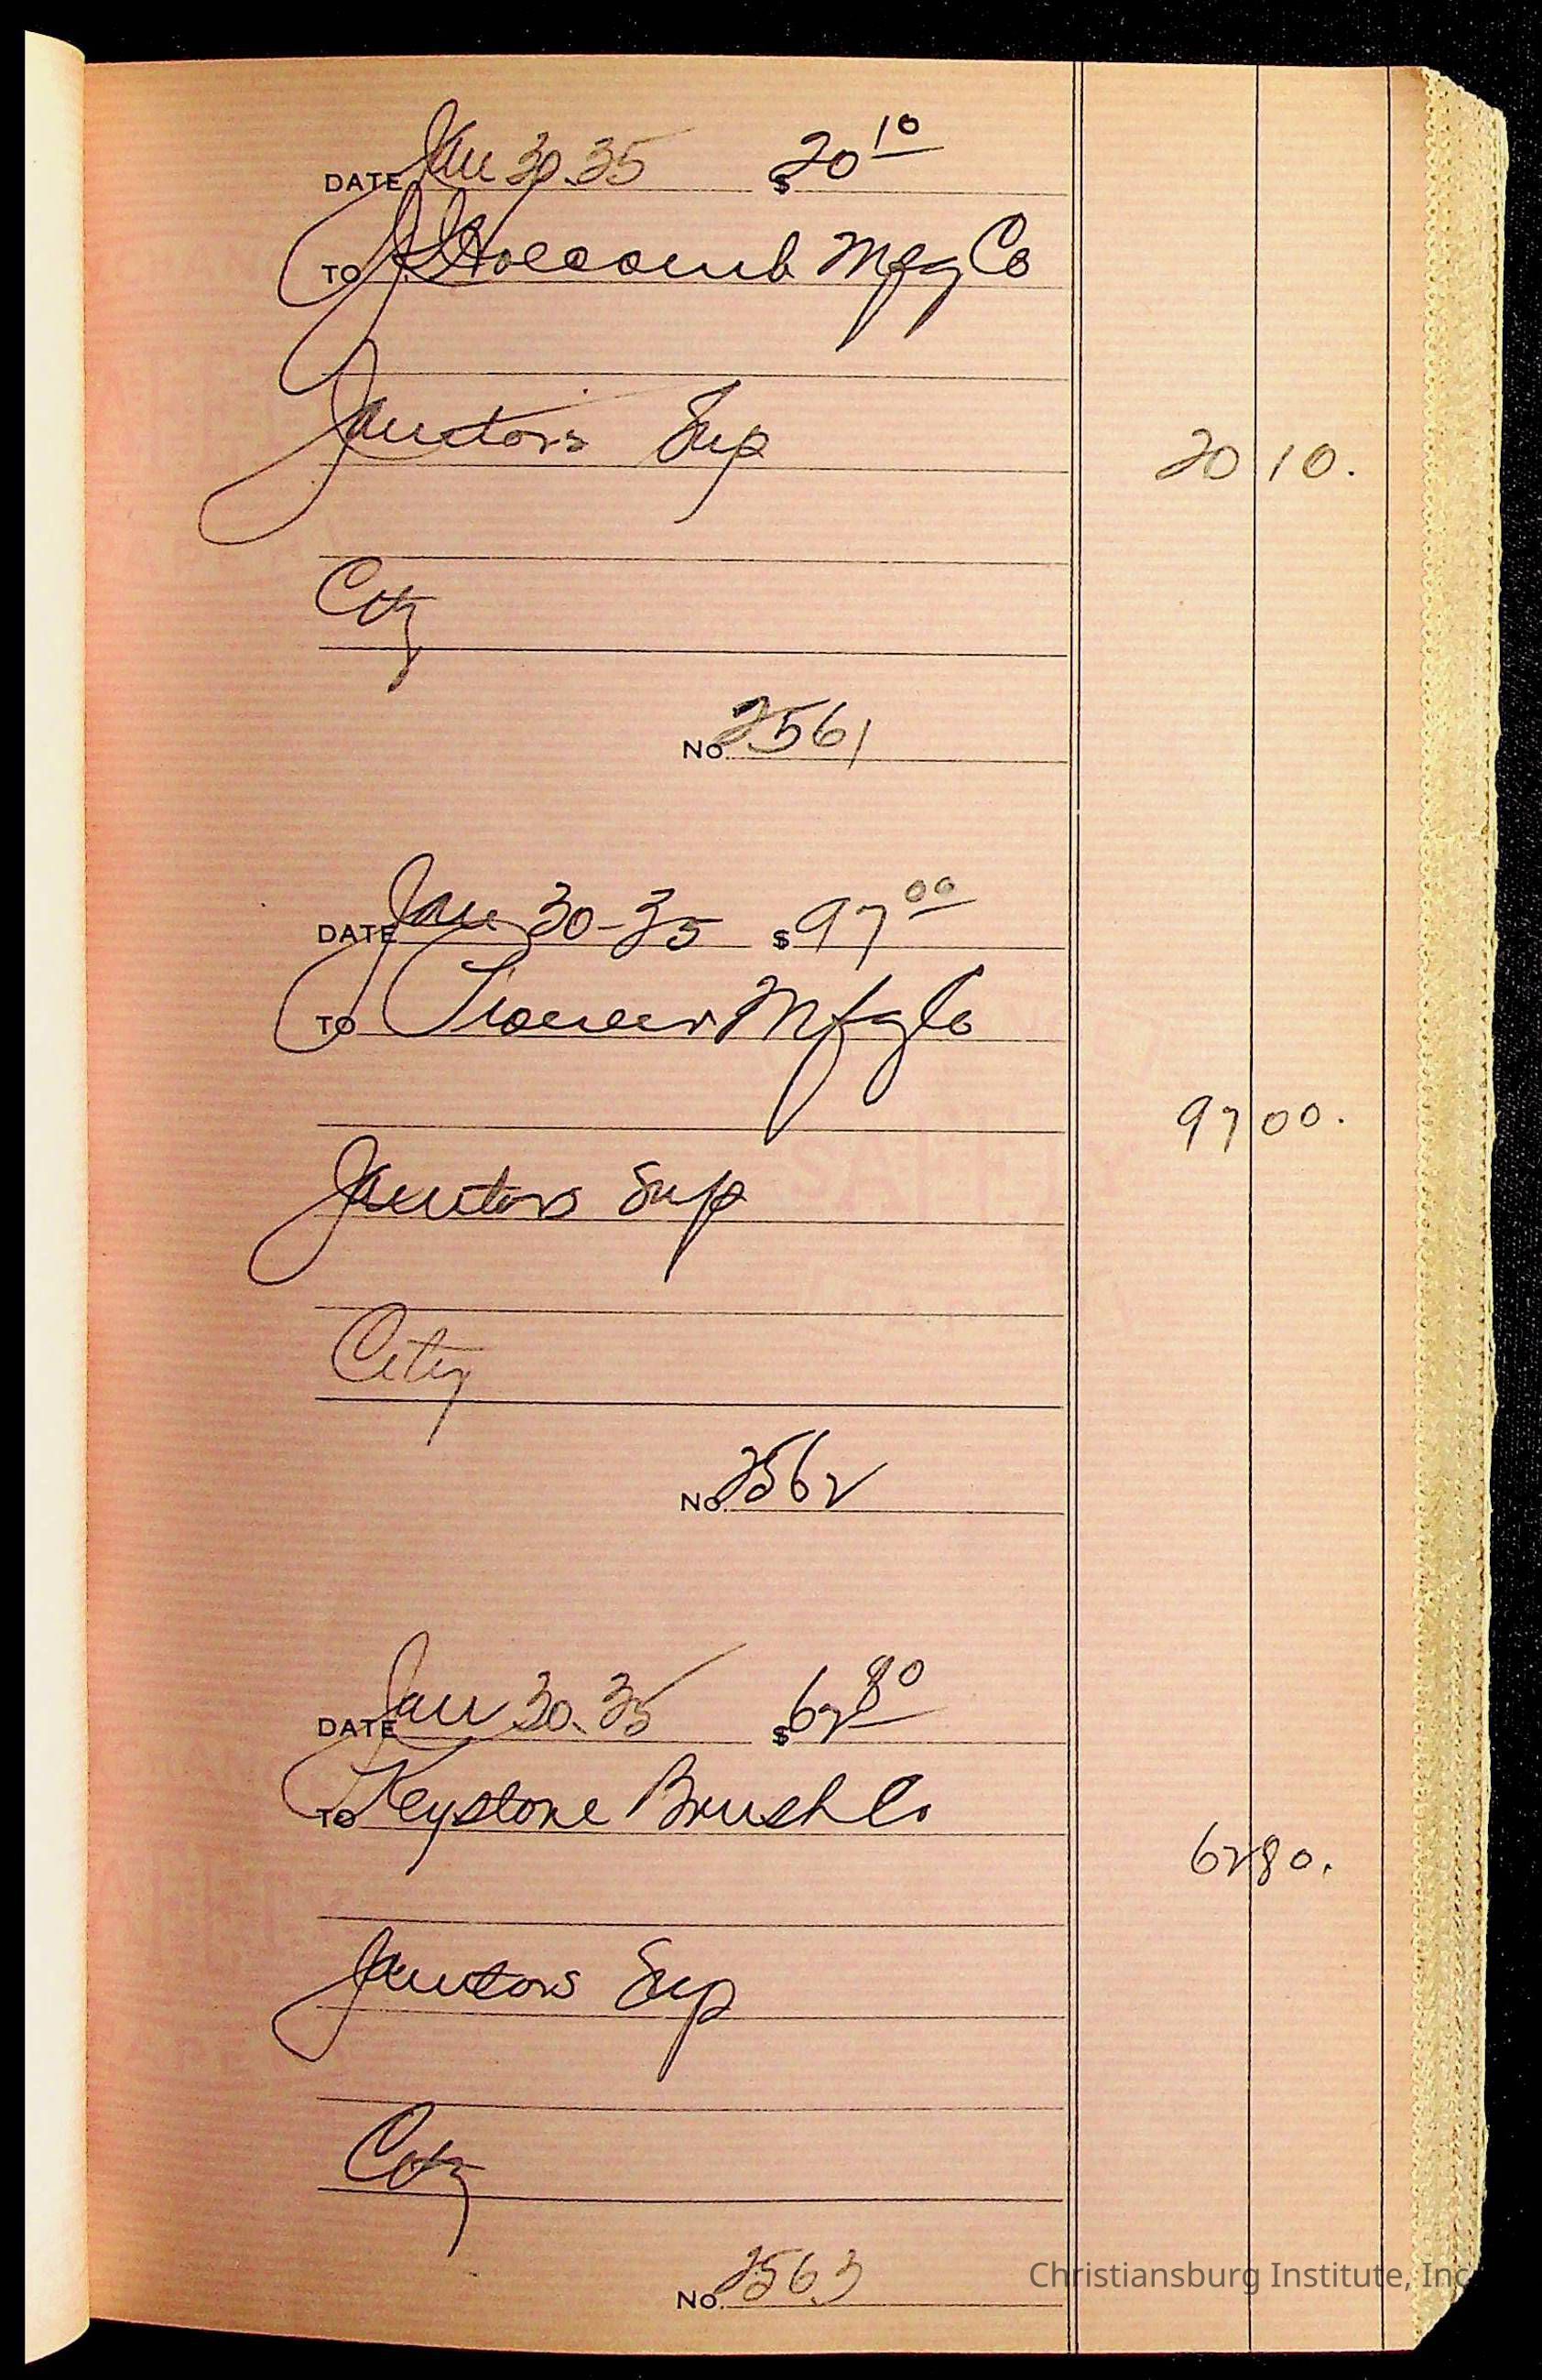 DATE Jan 30.35 $20 10
TO J I Holcomb Mfg Co
Janitors Sup
20 10.
City
No. 2561
DATE Jan 30-35 $97 00
TO Pioneer Mfg Co
97 00.
Janitors Sup
City
No. 2562
DATE Jan 30.35 $62 80
TO Keystone Brush Co
62 80.
Janitors Sup
City
No. 2563
Christiansburg Institute, Inc